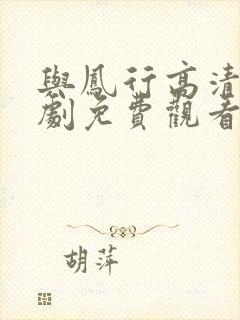 與鳳行高清
劇免費觀看
胡萍